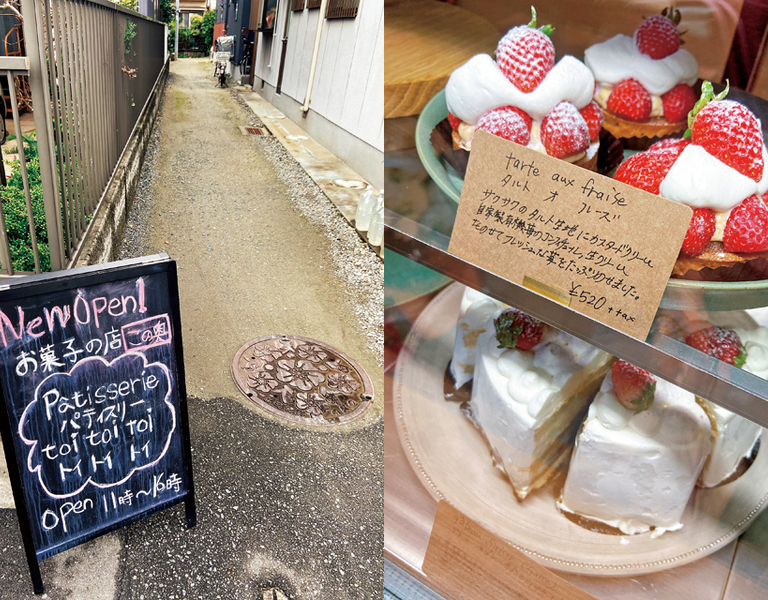 New Open!
お菓子の店 この奥
Patisserie
パティスリー
toi toi toi
トイ トイ トイ
Open 11時〜16時
tarte aux fraise
タルト オ フレーズ
サクサクのタルト生地にカスタードクリーム
自家製
生クリーム
たのせてフレッシュな苺をたっぷりのせました。
¥520 +tax